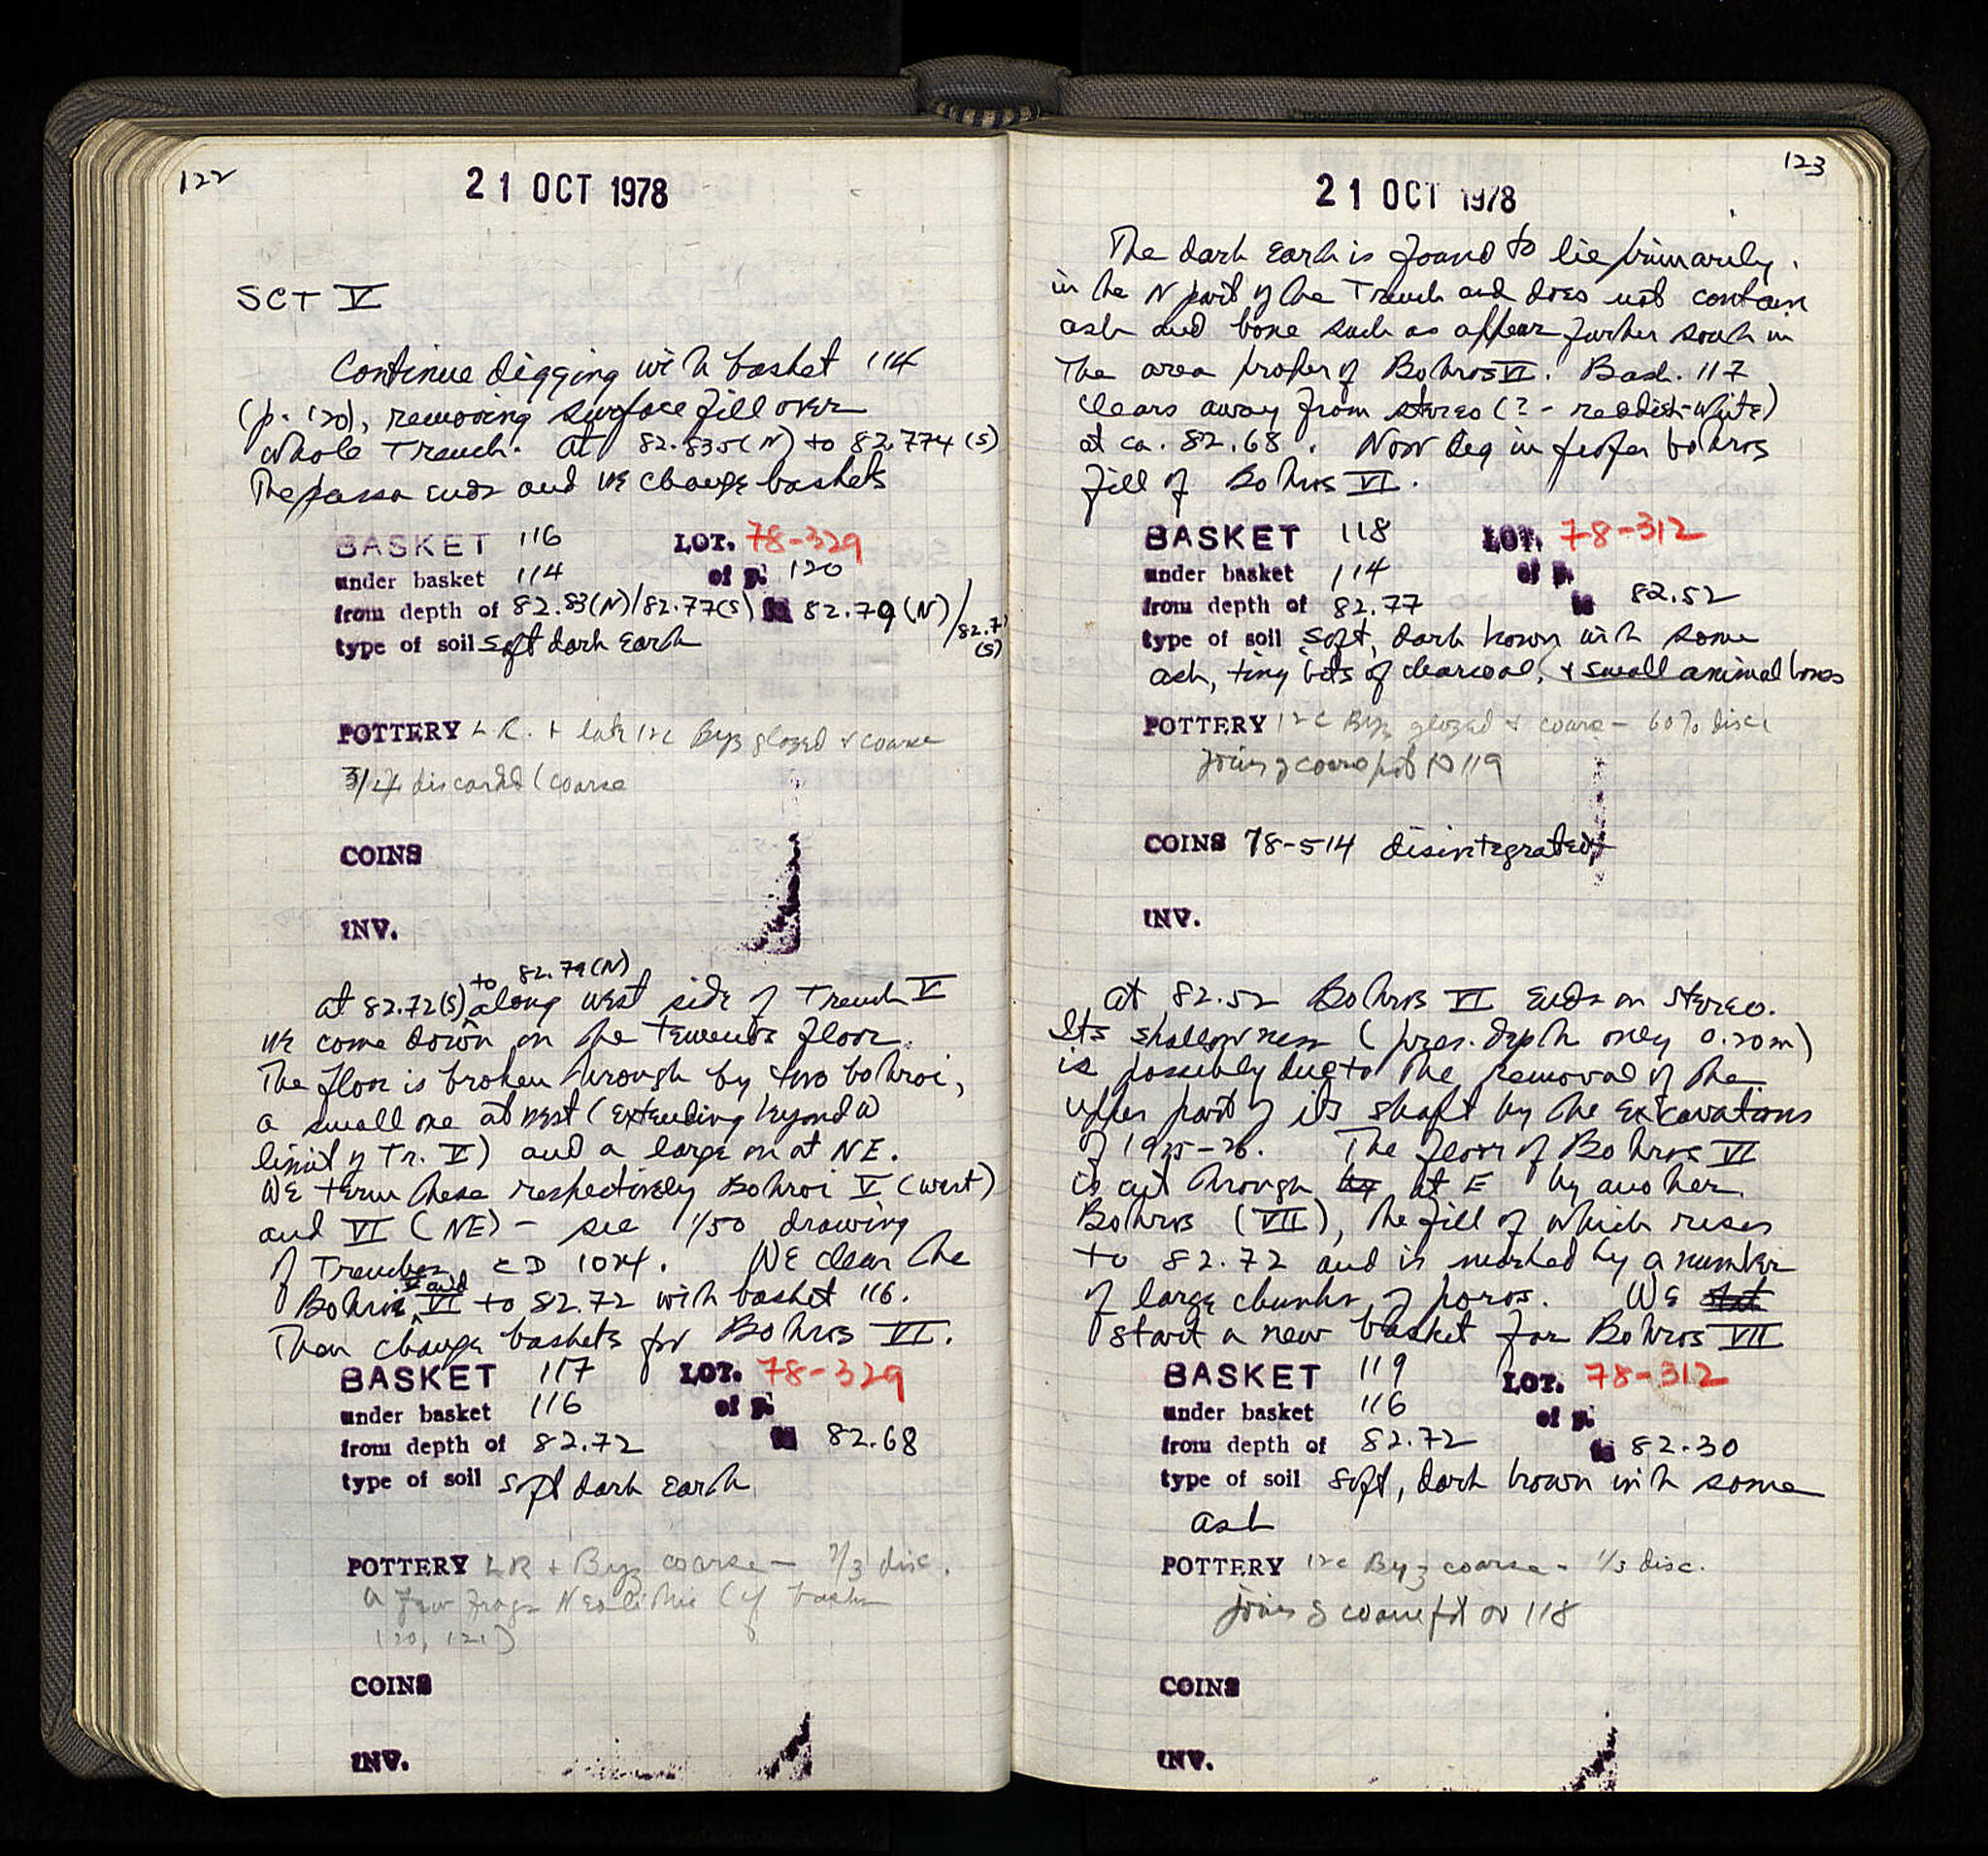 122
21 OCT 1978
SCT V
Continue digging with basket 114
(p. 120), removing surface fill over
whole Trench. At 82.835(N) to 82.774(S)
The passa ends and we change baskets
BASKET 116 LOT. 78-329
under basket 114 of p. 120
from depth of 82.83(N)/82.77(S) to 82.79(N)/82.7
(S)
type of soil soft dark earth
POTTERY LR. + late 12c Byz glazed & coarse
3/4 discarded (coarse
COINS
INV.
to 82.79(N)
At 82.72(S) along west side of Trench V
we come down on the temenos floor.
The floor is broken through by two bothroi,
a small one at west (extending beyond W
limit of Tr. V) and a large on at NE.
We term these respectively Bothroi V (west)
and VI (NE) – see 1/50 drawing
of Trenches CD 1024. We clear the
V and
Bothroi VI to 82.72 with basket 116.
Then change baskets for Bothros VI.
BASKET 117 LOT. 78-329
under basket 116 of p.
from depth of 82.72 to 82.68
type of soil soft dark earth
POTTERY LR + Byz coarse – 2/3 disc.
a few frags Neolithic (cf baskets
120, 121)
COINS
INV.
123
21 OCT 1978
The dark earth is found to lie primarily
in the N part of the Trench and does not contain
ash and bone such as appear further south in
the area proper of Bothros VI. Bask. 117
clears away from stereo (? - reddish-white)
at ca. 82.68. Now deg in proper bothros
fill of Bothros VI.
BASKET 118 LOT. 78-312
under basket 114 of p.
from depth of 82.77 to 82.52
type of soil soft, dark brown with some
ash, tiny bits of charcoal, & small animal bones
POTTERY 12c Byz glazed & coarse – 60% disc
joins of coarse pot to 119
COINS 78-514 disintegrated
INV.
At 82.52 Bothros VI ends on stereo.
Its shallowness (pres. depth only 0.20m)
is possibly due to the removal of the
upper part of its shaft by the excavations
of 1925-26. The floor of Bothros VI
is cut through by at E by another
Bothros (VII), the fill of which rises
to 82.72 and is marked by a number
of large chunks of poros. We stat
start a new basket for Bothros VII
BASKET 119 LOT. 78-312
under basket 116 of p.
from depth of 82.72 to 82.30
type of soil soft, dark brown with some
ash
POTTERY 12c Byz coarse – 1/3 disc.
joins of coarse pot w 118
COINS
INV.